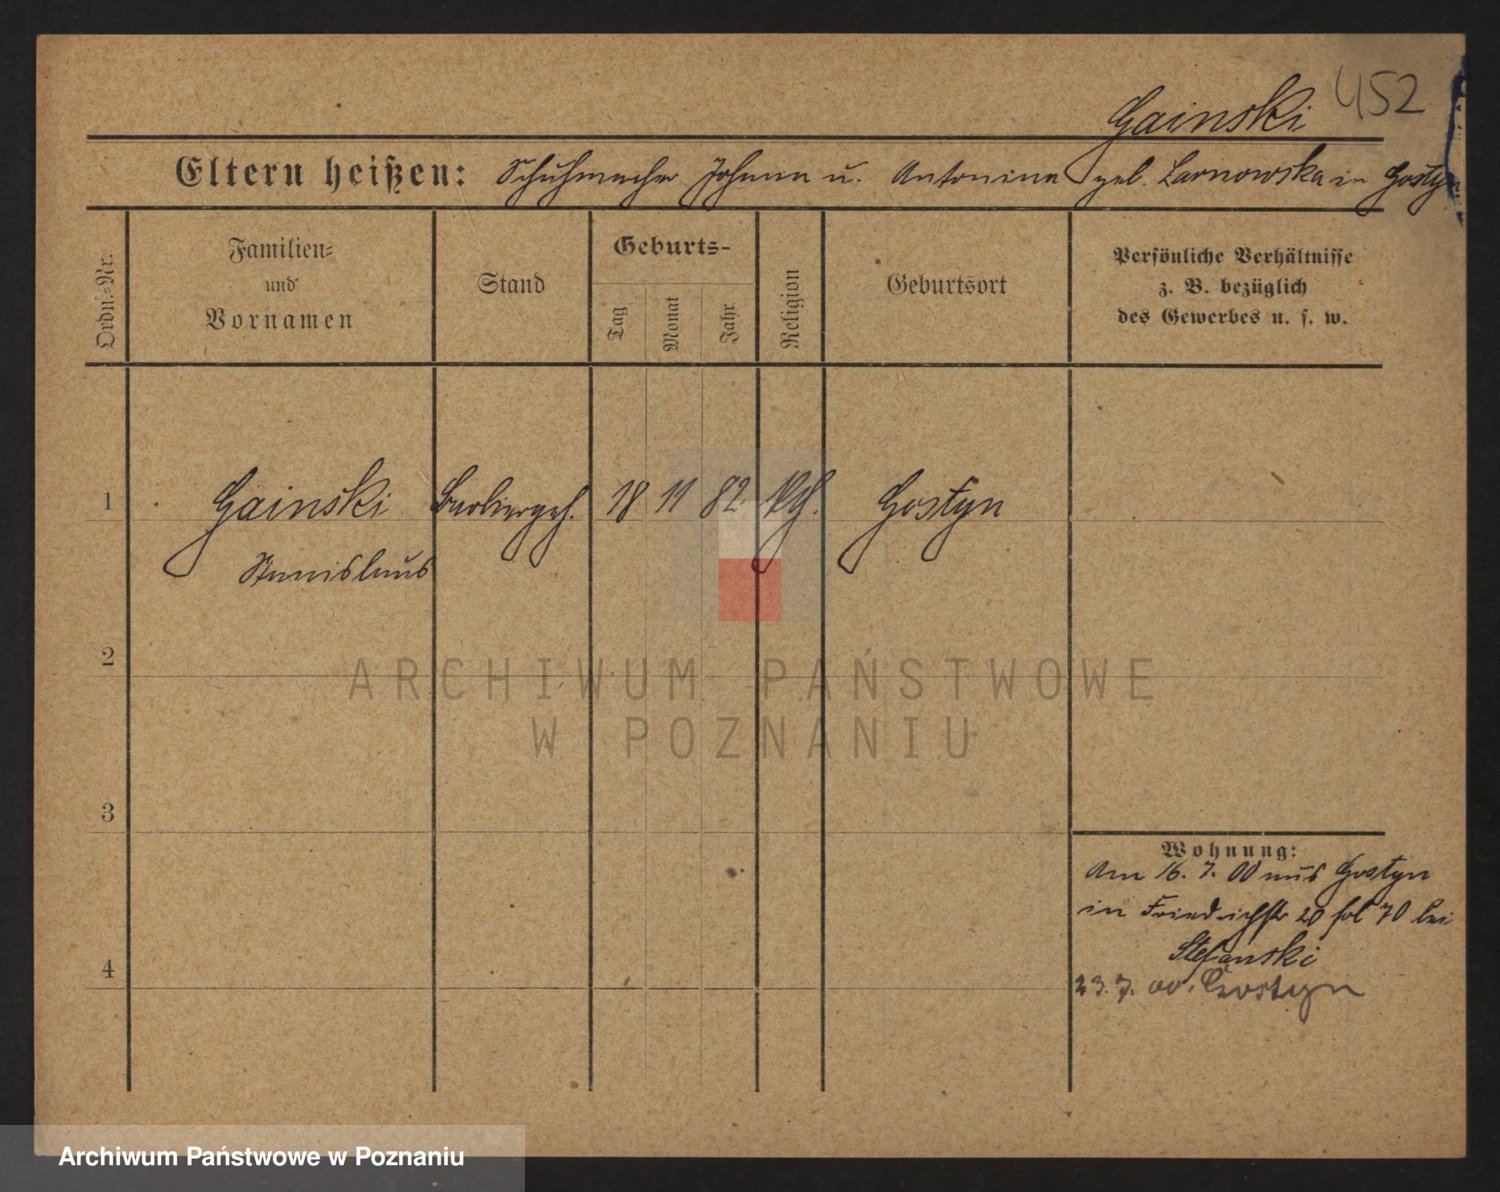 452
Gainski
Eltern heißen: Schuhmacher Johann u. Antonina geb. Larnowska in Gostyn
Ordn.-Nr.
Familien-
und
Vornamen
Stand
Geburts-
Tag
Monat
Jahr
Religion
Geburtsort
Persönliche Verhältnisse
z. B. bezüglich
des Gewerbes u. s. w.
1 Gainski Barbiergeh. 18 11 82 kth. Gostyn
Stanislaus
2
ARCHIWUM PAŃSTWOWE
W POZNANIU
3
Wohnung:
Am 16. 7. 00 aus Gostyn
in Friedrichstr 20 fol 70 bei
Stefanski
4
23. 7. 00. Gostyn
Archiwum Państwowe w Poznaniu